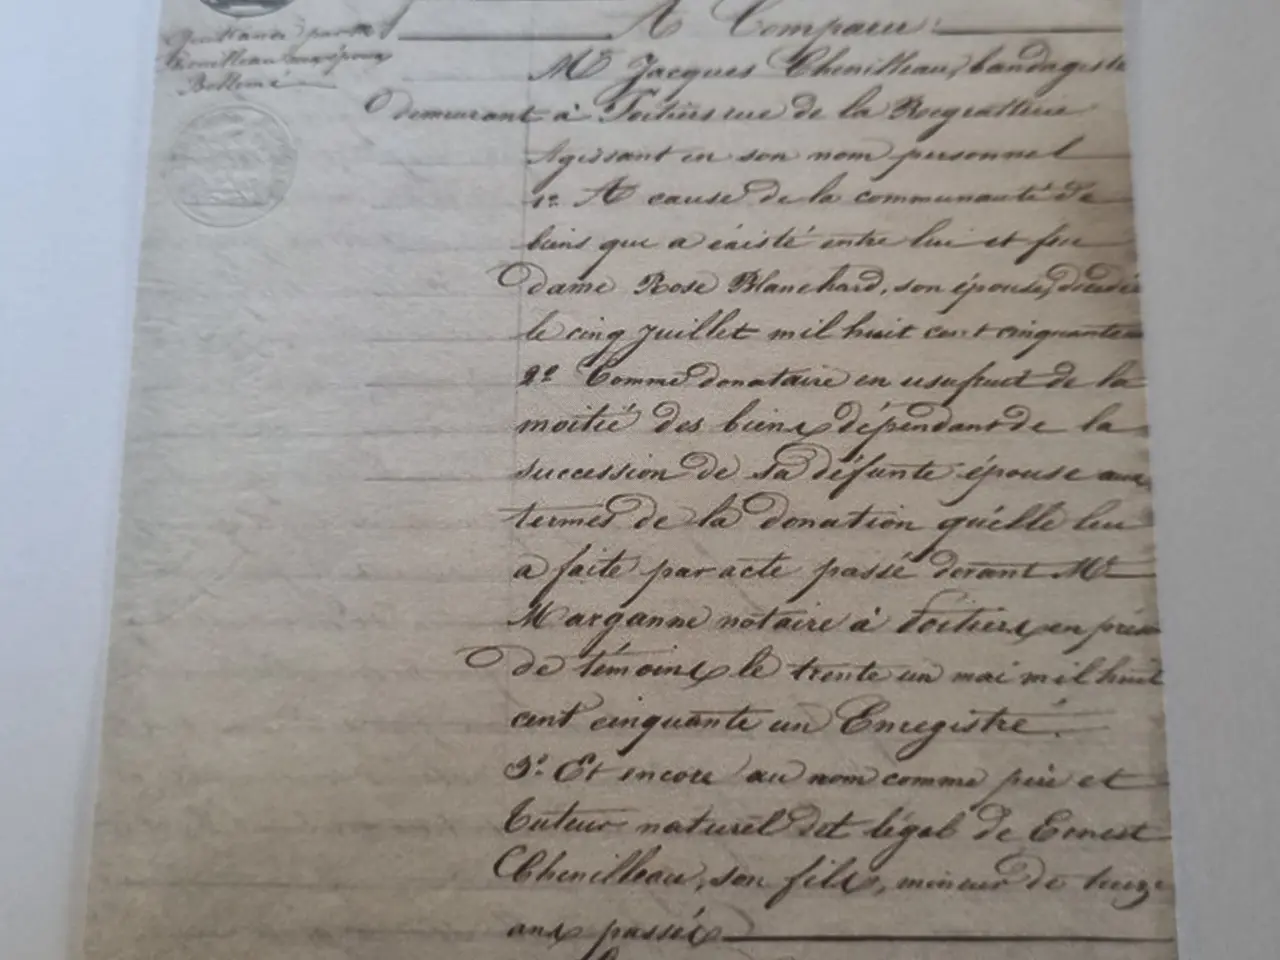 A Comparu :
Quittance par Mr
Chenilleau
Mr Jacques Chenilleau, bandagiste
demeurant à Poitiers rue de la Regratterie
Agissant en son nom personnel
1o A cause de la communauté de
biens qui a éxisté entre lui et feu
dame Rose Blanchard, son épouse, décédée
le cinq juillet mil huit cent cinquante
2o Comme donataire en usufruit de la
moitié des biens dépendant de la
succession de sa défunte épouse aux
termes de la donation qu'elle lui
a faite par acte passé devant Me
Marganne notaire à Poitiers, en
de témoins, le trente un mai mil huit
cent cinquante un Enregistré.
3o Et encore au nom comme père et
tuteur naturel et légal de Ernest
Chenilleau, son fils, mineur de
ans passés